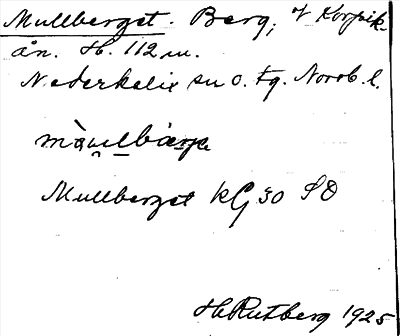 Mullberget. Berg, v Korpik-
ån. H. 112 m.
Nederkalix sn o. tg. Norrb. l.
Mullberget kG 30 SO
H Rutberg 1925